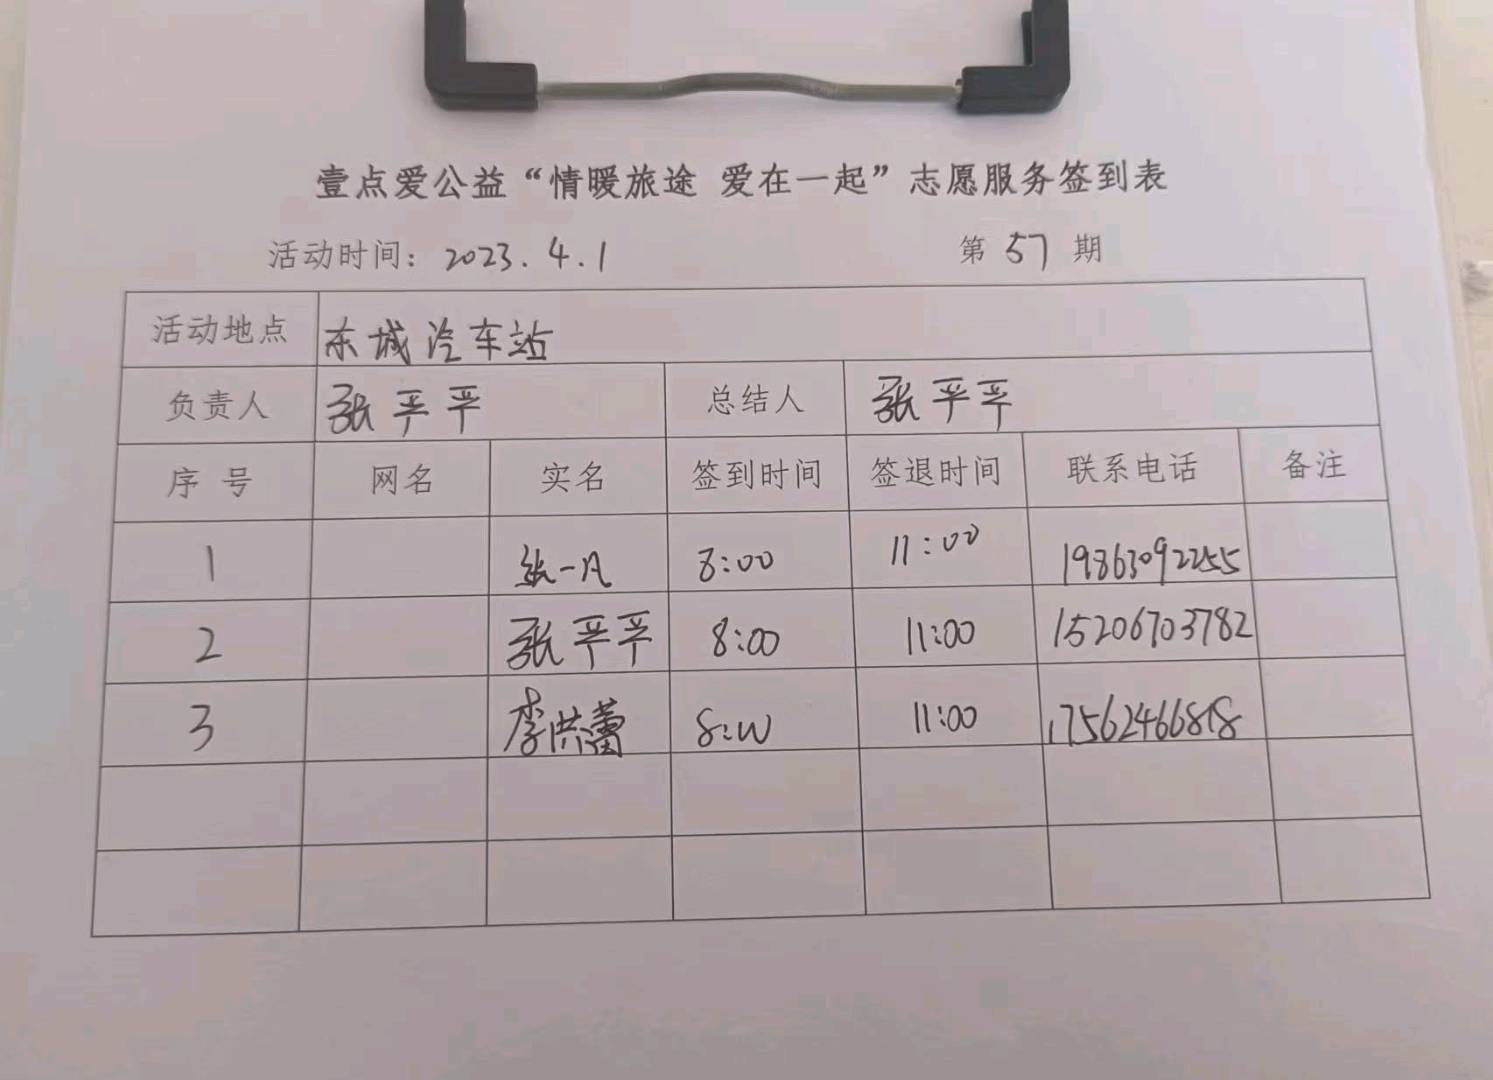 壹点爱公益“情暖旅途 爱在一起”志愿服务签到表
活动时间：2023.4.1 第 57 期
活动地点 东城汽车站
负责人 张平平 总结人 张平平
序号 网名 实名 签到时间 签退时间 联系电话 备注
1 张一凡 8:00 11:00 19863092255
2 张平平 8:00 11:00 15206703782
3 李洪蕾 8:00 11:00